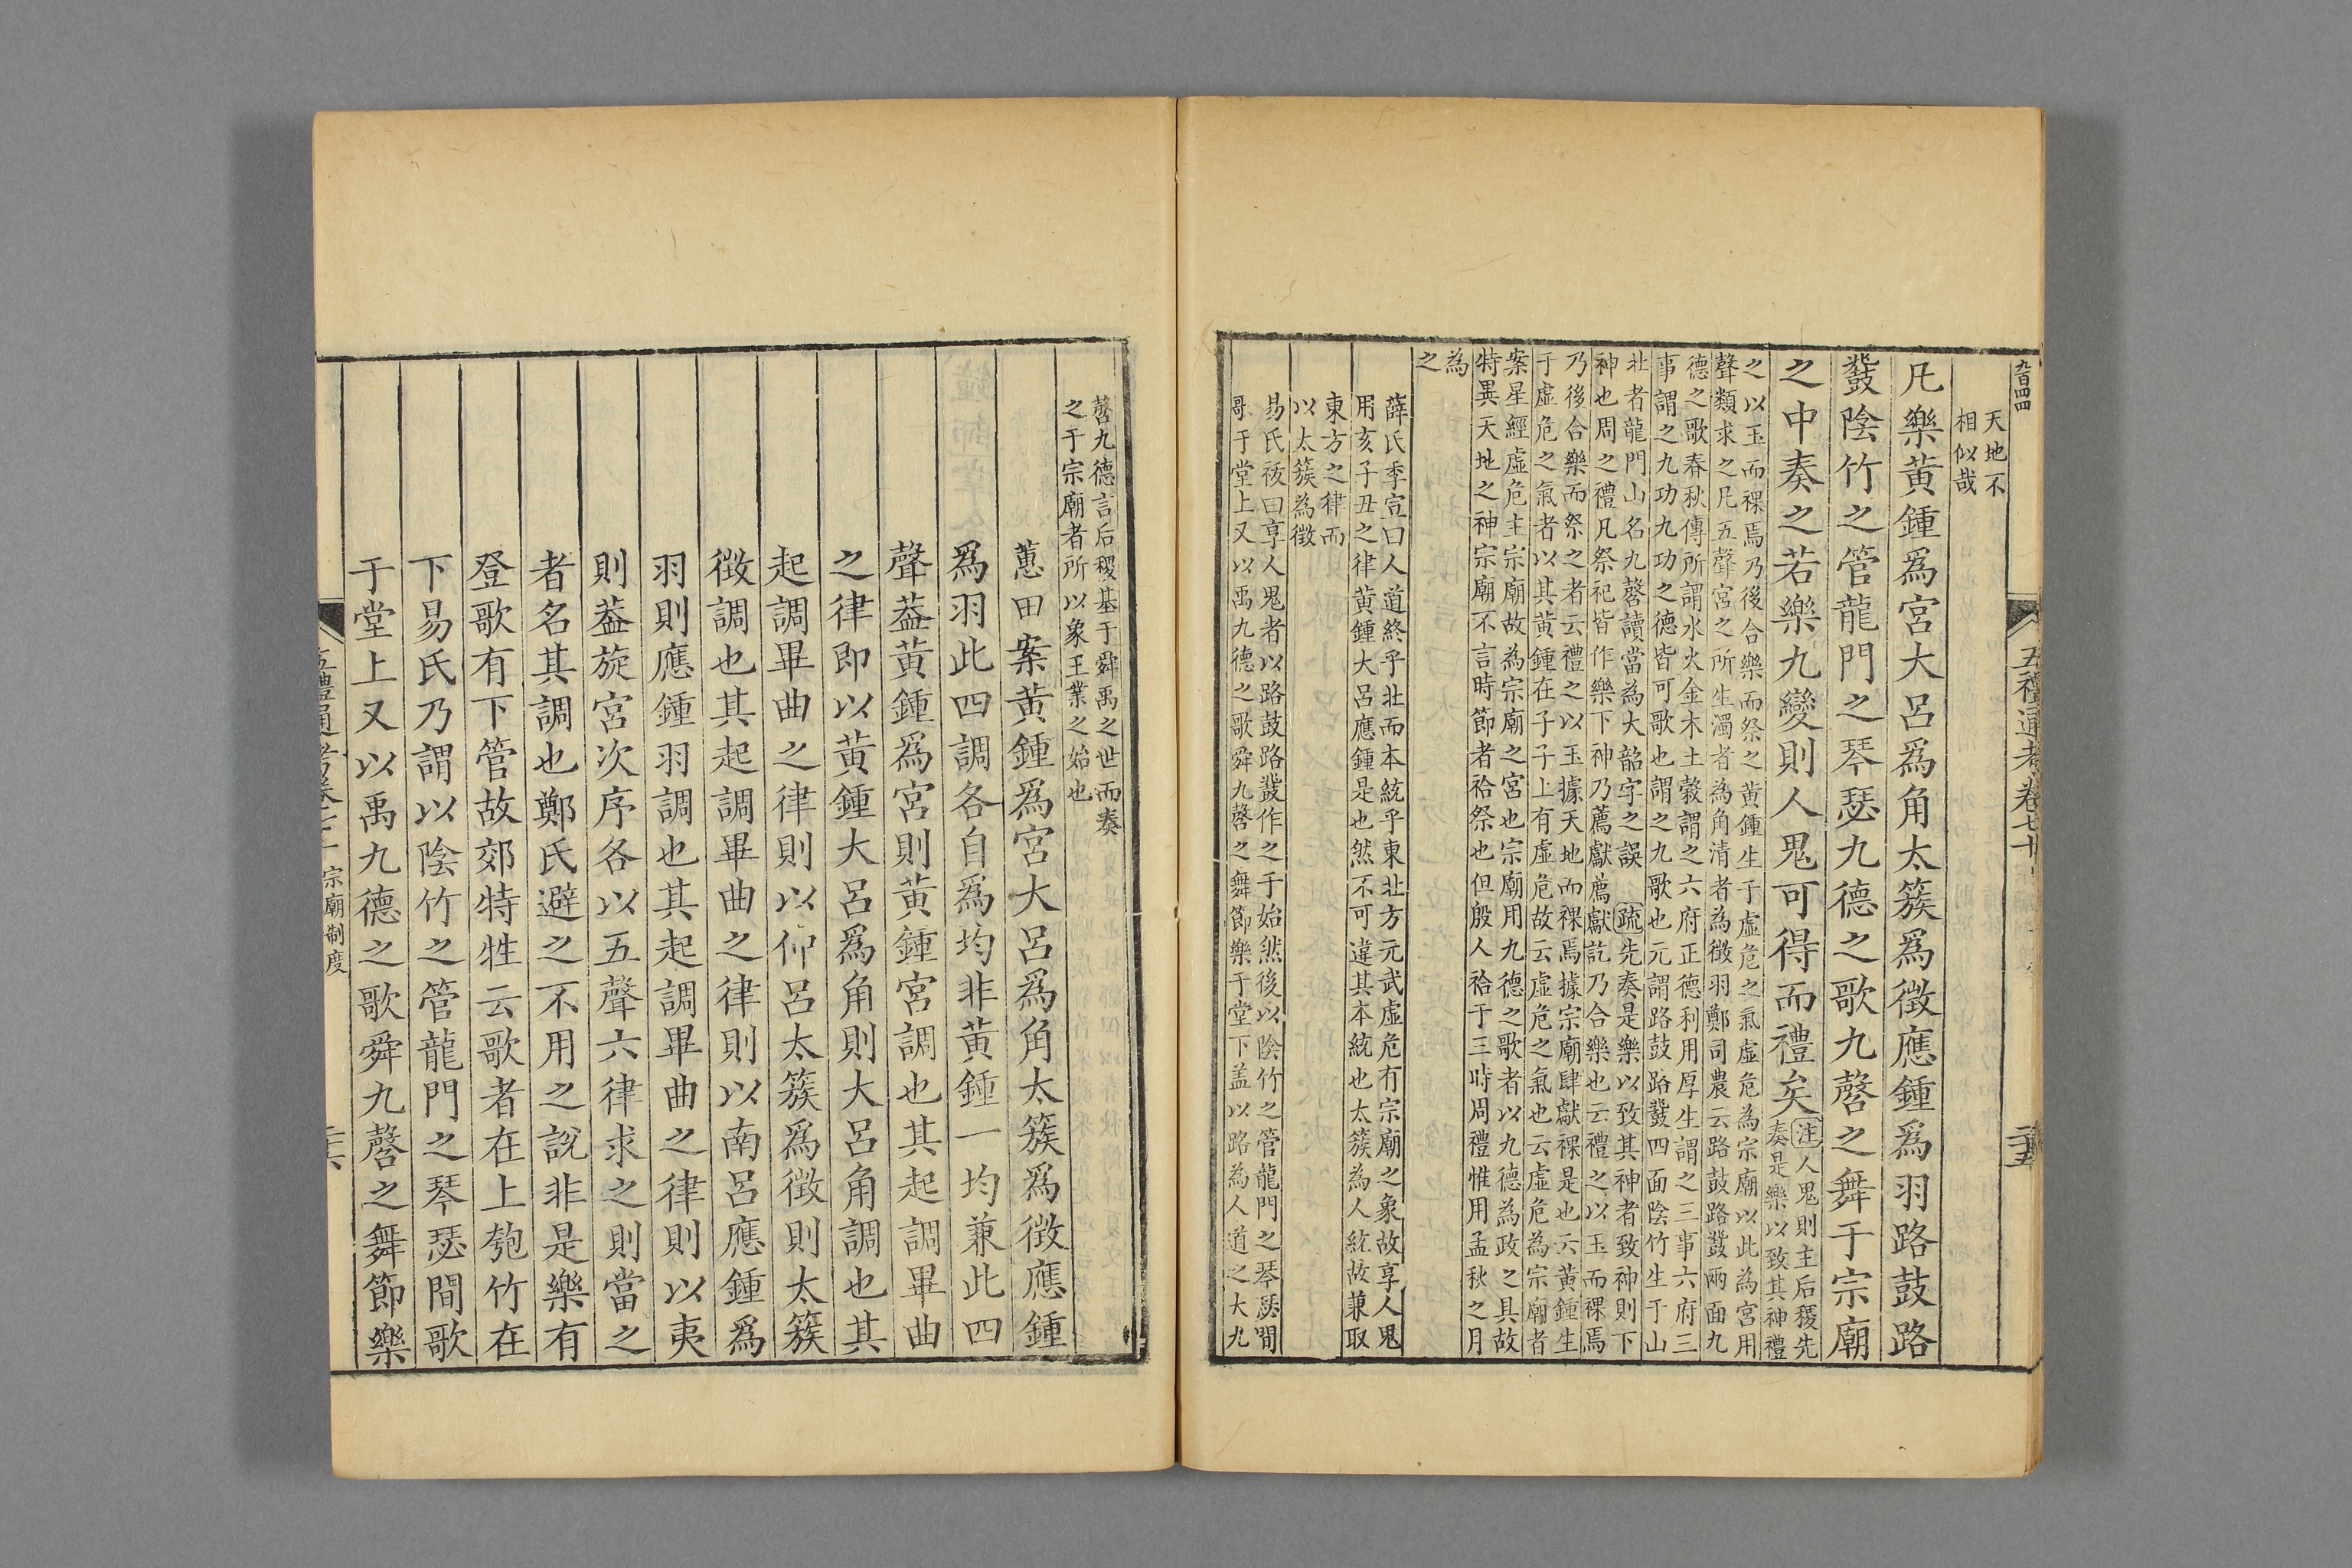 九百四四
五禮通考卷七十
二十五
天地不
相似哉
凡樂黃鍾爲宮大呂爲角太簇爲徵應鍾爲羽路鼓路
鼗陰竹之管龍門之琴瑟九德之歌九㲈之舞于宗廟
之中奏之若樂九變則人鬼可得而禮矣
注人鬼則主后稷先
奏是樂以致其神禮
之以玉而祼焉乃後合樂而祭之黃鍾生于虛危之氣虛危為宗廟以此為宮用
聲類求之凡五聲宮之所生濁者為角清者為徵羽鄭司農云路鼓路鼗兩面九
德之歌春秋傳所謂水火金木土穀謂之六府正德利用厚生謂之三事六府三
事謂之九功九功之德皆可歌也謂之九歌也元謂路鼓路鼗四面陰竹生于山
北者龍門山名九㲈讀當為大韶字之誤 疏先奏是樂以致其神者致神則下
神也周之禮凡祭祀皆作樂下神乃薦獻薦獻訖乃合樂也云禮之以玉而祼焉
乃後合樂而祭之者云禮之以玉據天地而祼焉據宗廟肆獻祼是也云黃鍾生
于虛危之氣者以其黃鍾在子子上有虛危故云虛危之氣也云虛危為宗廟者
案星經虛危主宗廟故為宗廟之宮也宗廟用九德之歌者以九德為政之具故
特異天地之神宗廟不言時節者祫祭也但殷人祫于三時周禮惟用孟秋之月
為
之
薛氏季宣曰人道終乎北而本統乎東北方元武虛危有宗廟之象故享人鬼
用亥子丑之律黃鍾大呂應鍾是也然不可違其本統也太簇為人統故兼取
東方之律而
以太簇為徵
易氏祓曰享人鬼者以路鼓路鼗作之于始然後以陰竹之管龍門之琴瑟間
歌于堂上又以禹九德之歌舜九㲈之舞節樂于堂下盖以路為人道之大九
㲈九德言后稷基于舜禹之世而奏
之于宗廟者所以象王業之始也
蕙田案黃鍾爲宮大呂爲角太簇爲徵應鍾
爲羽此四調各自爲均非黃鍾一均兼此四
聲葢黃鍾爲宮則黃鍾宮調也其起調畢曲
之律即以黃鍾大呂爲角則大呂角調也其
起調畢曲之律則以仲呂太簇爲徵則太簇
徵調也其起調畢曲之律則以南呂應鍾爲
羽則應鍾羽調也其起調畢曲之律則以夷
則葢旋宮次序各以五聲六律求之則當之
者名其調也鄭氏避之不用之說非是樂有
登歌有下管故郊特牲云歌者在上匏竹在
下易氏乃謂以陰竹之管龍門之琴瑟間歌
于堂上又以禹九德之歌舜九㲈之舞節樂
五禮通考卷七十
宗廟制度
二十六